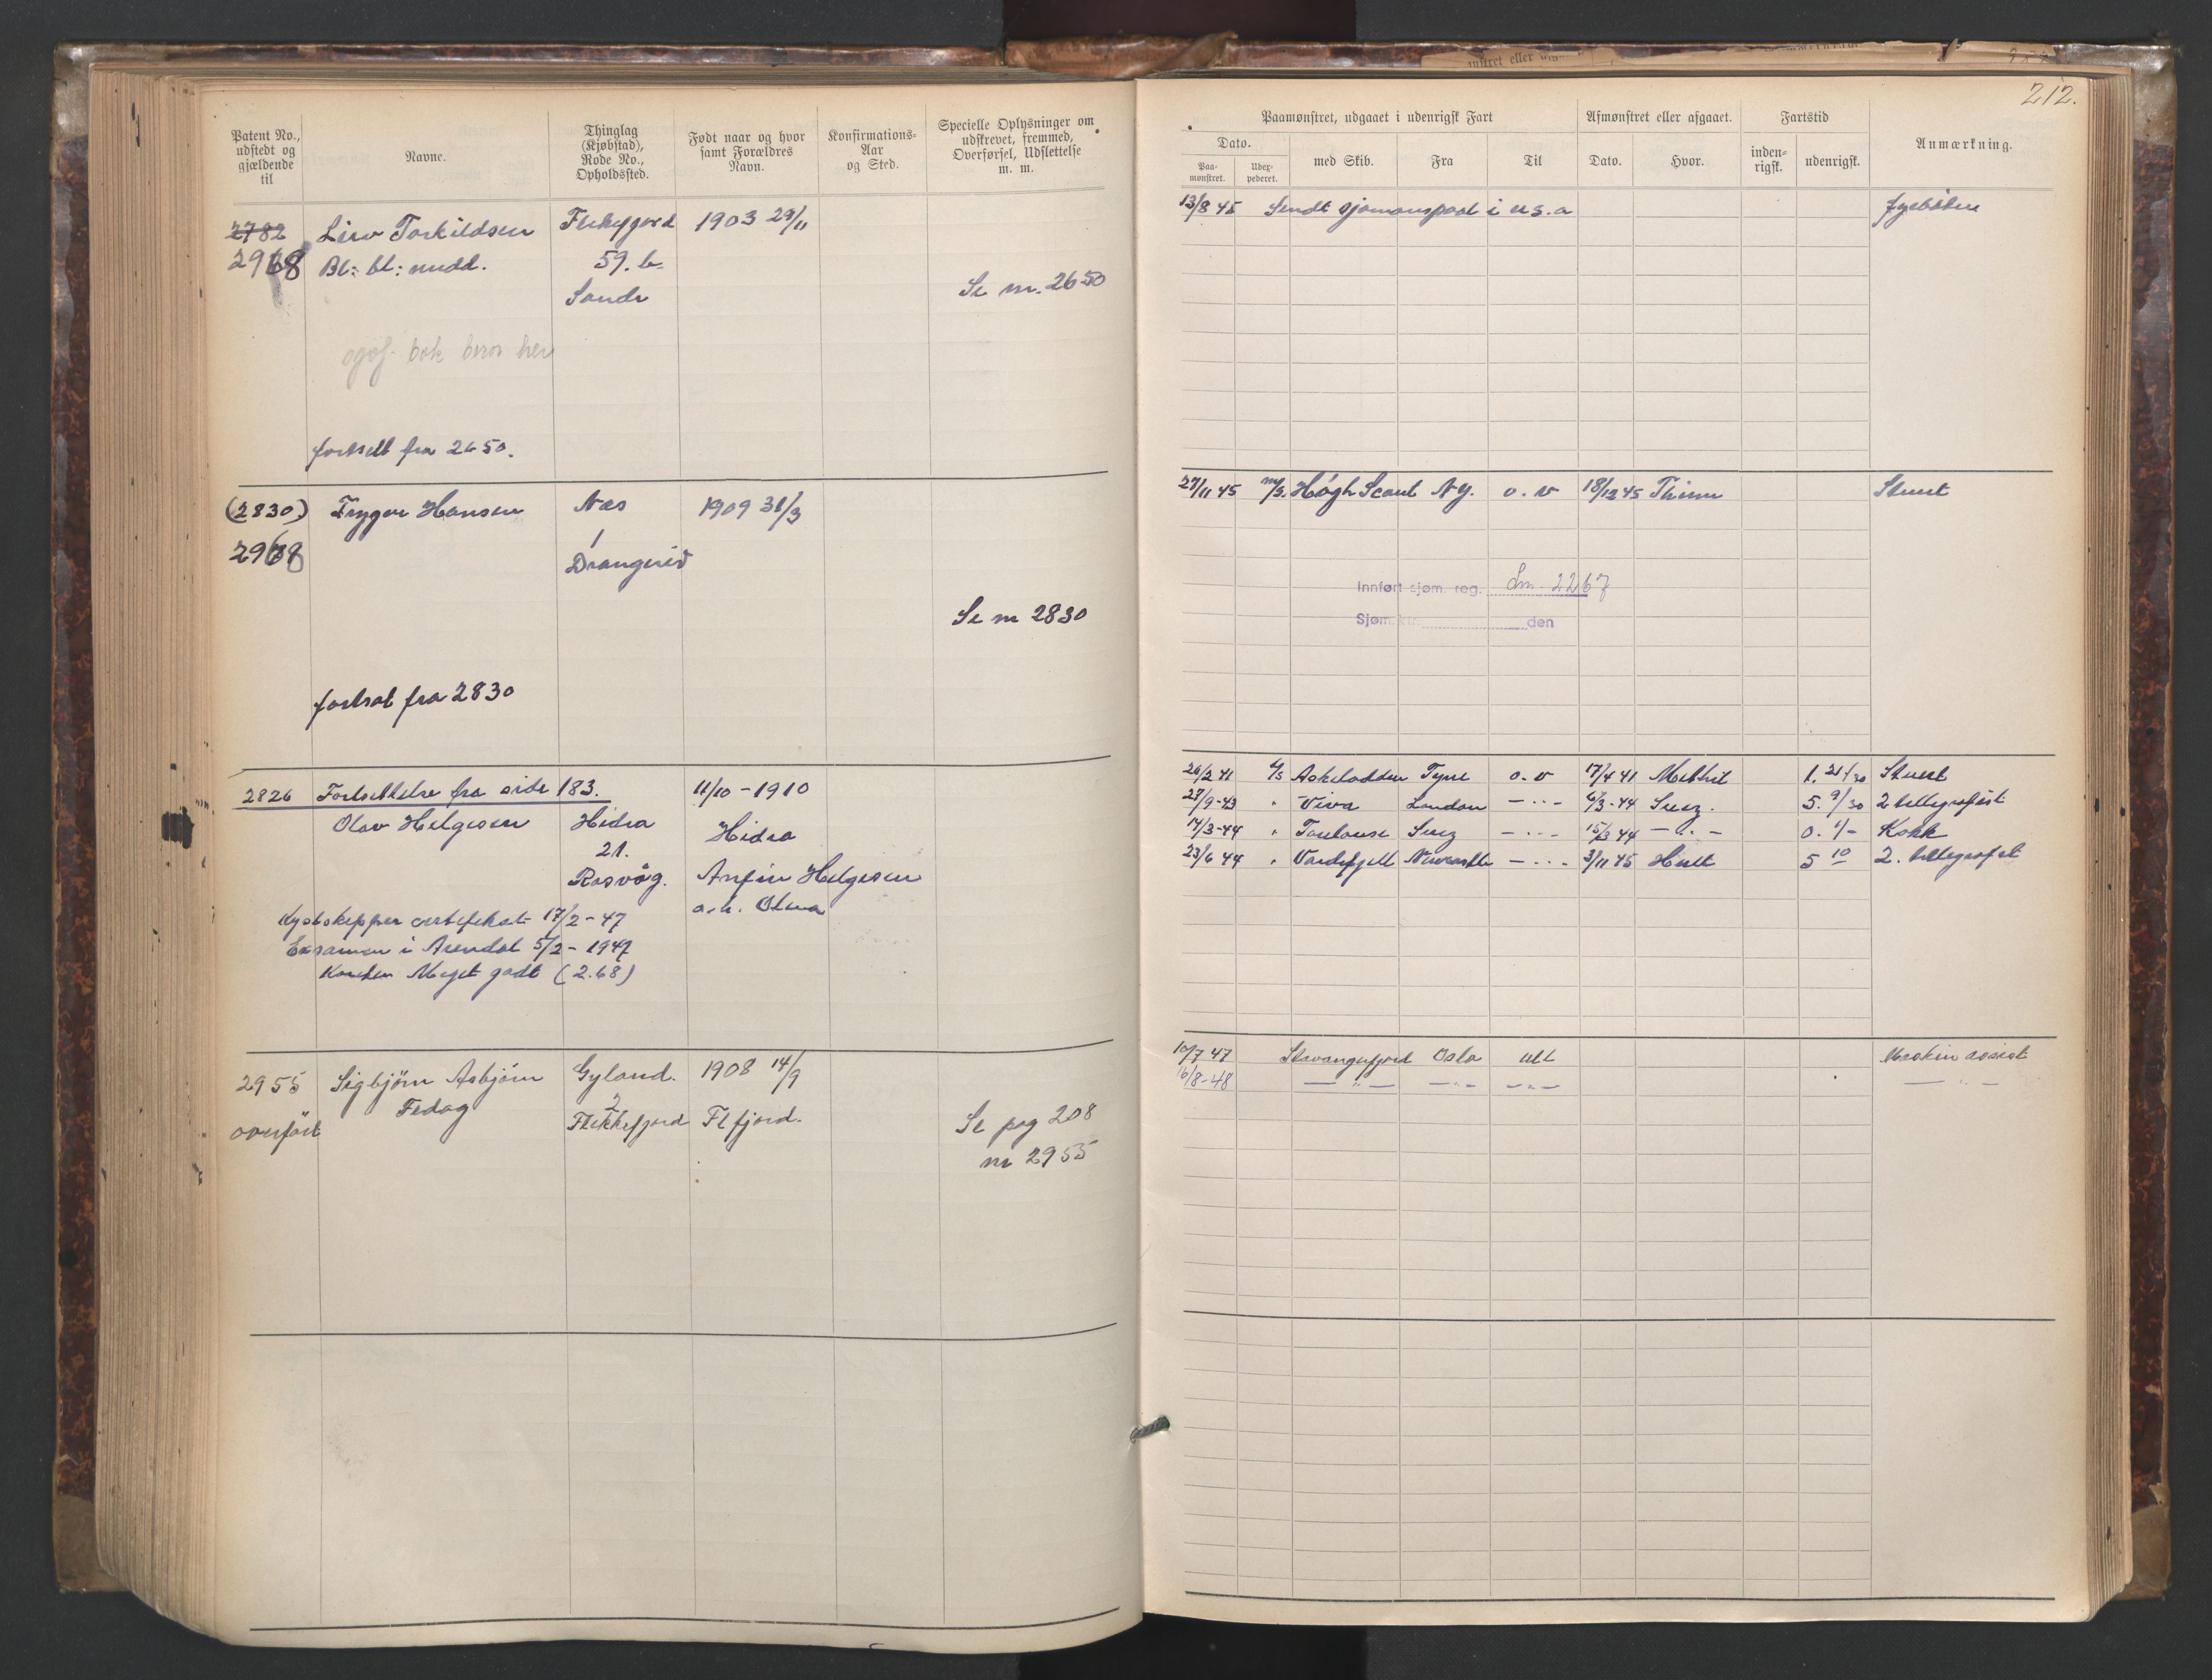 212.
Patent No., udstedt og gjældende til
Navne.
Thinglag (Kjøbstad), Rode No., Opholdssted.
Født naar og hvor samt Forældres Navn.
Konfirmations-Aar og Sted.
Specielle Oplysninger om udskrevet, fremmed, Overførsel, Udslettelse m. m.
Paamønstret, udgaaet i udenrigsk Fart
Dato.
Paa-mønstret.
Uder-pederet.
med Skib.
Fra
Til
Afmønstret eller afgaaet.
Dato.
Hvor.
Fartstid
inden-rigsk.
udenrigsk.
Anmærkning.
2782 Torkildsen Flekkefjord 1903 29/11
2968 Bl: bl: midd. 59. b.
Sande
Se nr. 2650
bok beror her
fortsett fra 2650.
13/8 45 Sendt sjømanspool i u.s.a fyrbøter
(2830) Trygve Hansen Næs 1909 31/3
2968 1
Drangeid
Se nr 2830
fortsat fra 2830
27/11 45 m/s. Høgh Scout N.Y. o. v 18/12 45 Stuert
Innført sjøm. reg. Lm - 2267
Sjøm.ktr. den
2826 Fortsettelse fra side 183. 11/10 - 1910
Olav Helgesen Hidra Hidra
21.
Rasvåg. Anfin Helgesen
o.h. Olena
Kystskipper certifikat 17/2 - 47
Examen i Arendal 5/2 - 1947
Karakter Meget godt (2.68)
26/2 41 t/s Askeladden Tyne o. v 17/4 41 Methil 1. 21/30 Stuert
27/9 - 43 " Viva London — " — 6/3 - 44 Suez. 5. 9/30 2 telegrafist
14/3 - 44 " Toulouse Suez — " — 15/3 44 — " — 0. 1/- Kokk
23/6 44 " Vardefjell Newcastle — " — 3/11 45 Hull 5 10 2. telegrafist
2955 Sigbjörn Asbjörn Gyland. 1908 14/9
overført Fedog 2
Flekkefjord Fl fjord.
Se pag 208
nr 2955
10/7 47 Stavangerfjord Oslo utl Maskin assist
16/8 - 48 — " — — " — — " — — " —